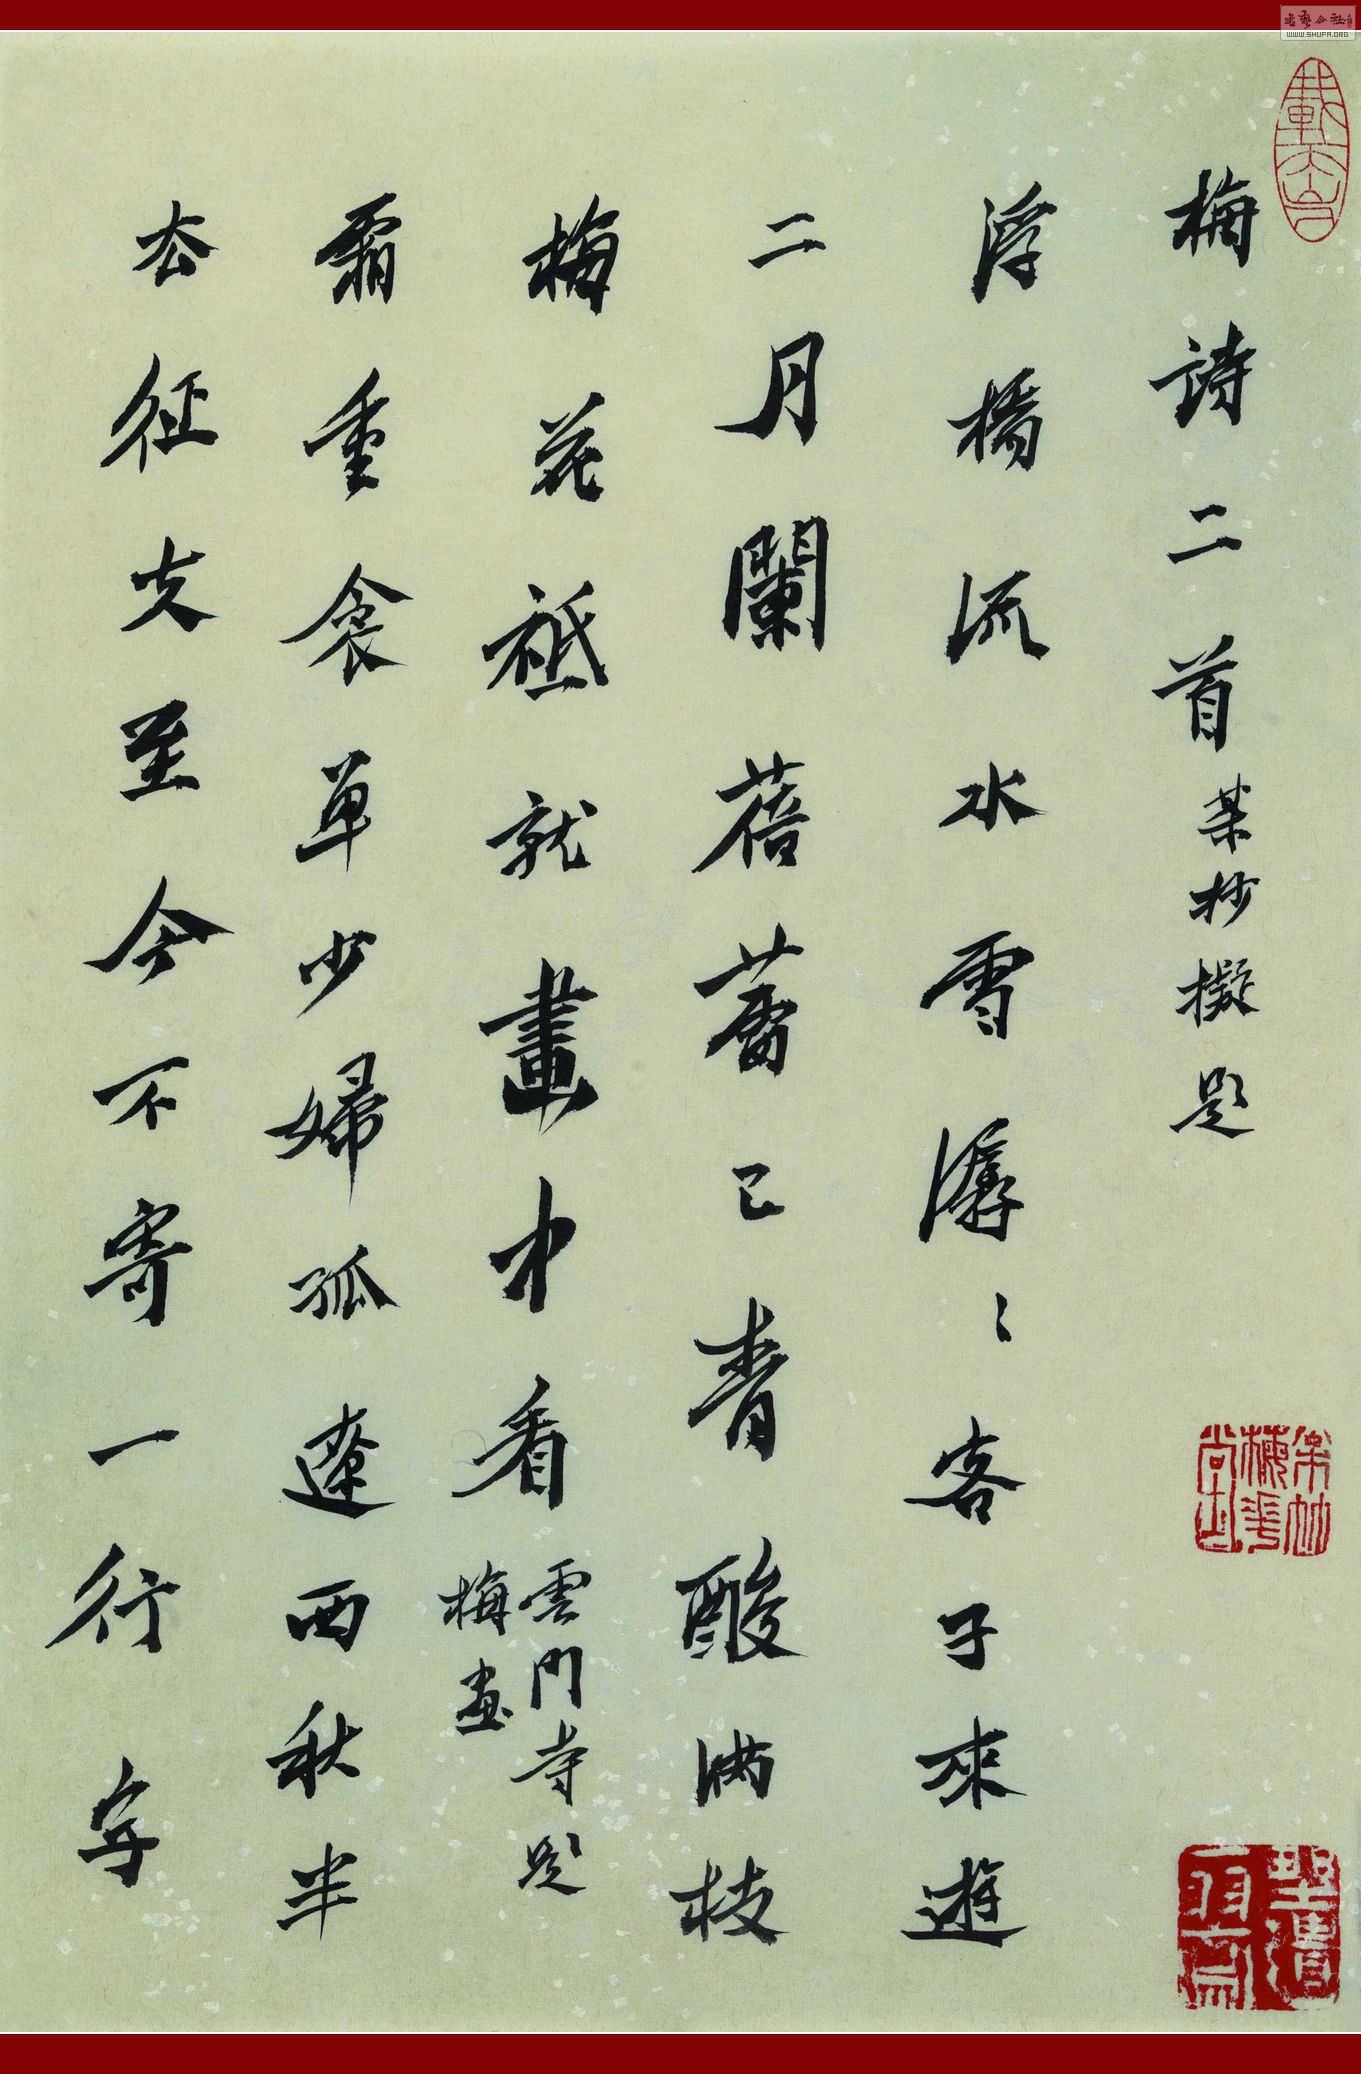 梅詩二首某抄擬題
浮橋流水雪潺〻客子來遊
二月闌蓓蕾已青酸滿枝
梅花祗就畫中看
雲門寺題
梅畫
霜重衾單少婦孤遼西秋半
厺征夫至今不寄一行字
WWW.SHUFA.ORG